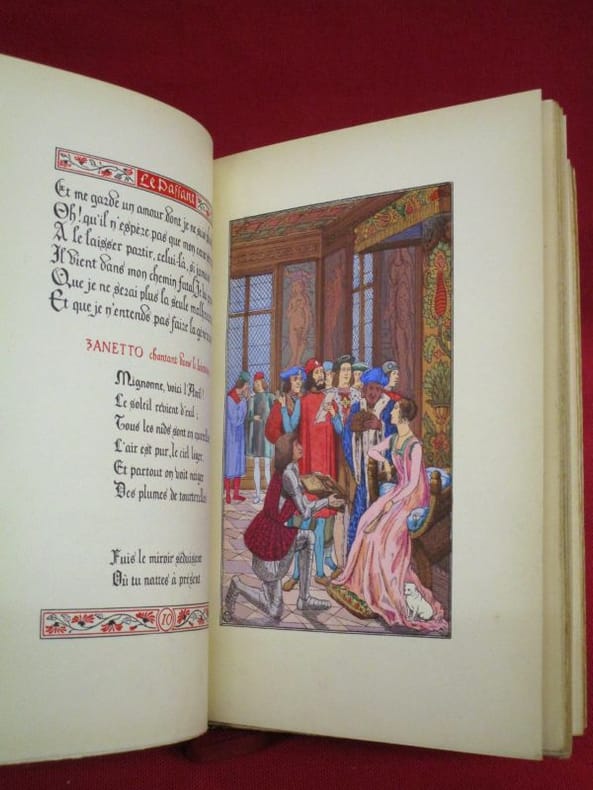 Le Passant
Et me garde un amour dont je ne suis
Oh! qu'il n'espère pas que mon cœur
A le laisser partir, celui-là, si jamais
Il vient dans mon chemin fatal. Je
Que je ne serai plus la seule
Et que je n'entends pas faire la
ZANETTO chantant dans le
Mignonne, voici l'Avril!
Le soleil revient d'exil;
Tous les nids sont en querelles
L'air est pur, le ciel léger,
Et partout on voit neiger
Des plumes de tourterelles
Fuis le miroir séduisant
Où tu nattes à présent
10